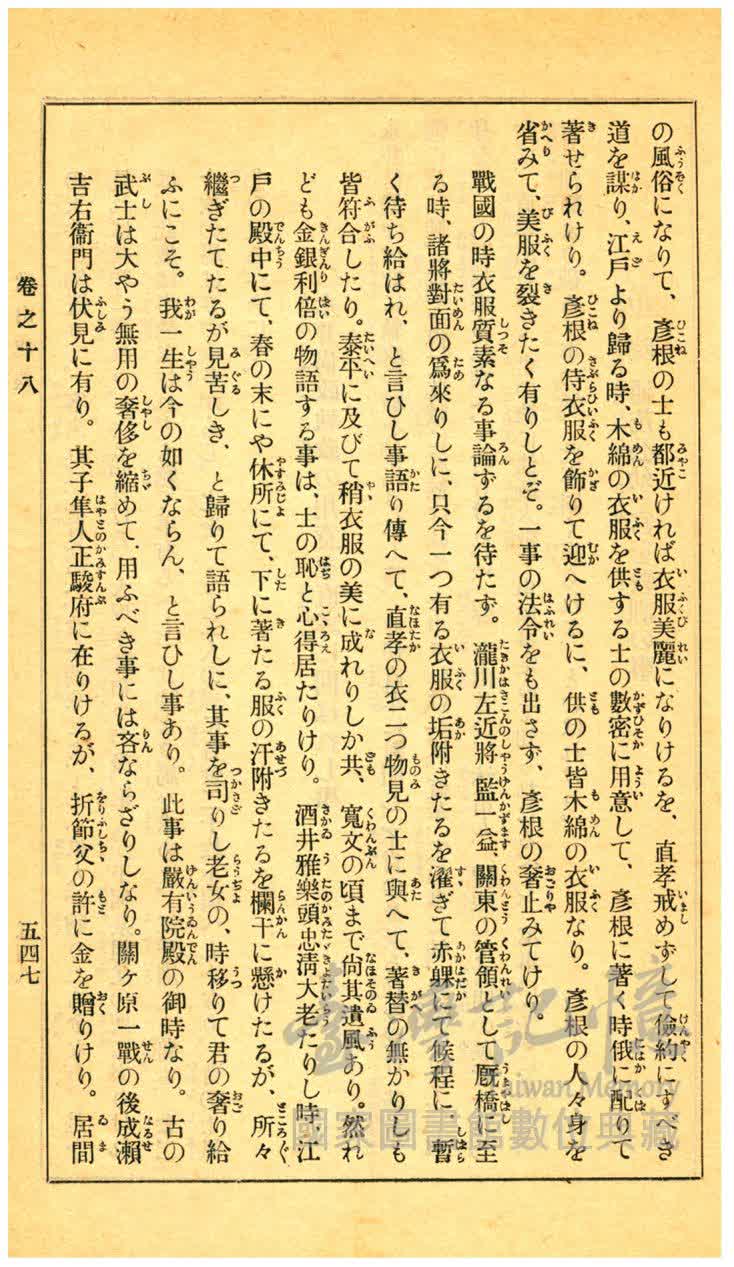 の風俗になりて、彦根の士も都近ければ衣服美麗になりけるを、直孝戒めずして儉約にすべき
道を謀り、江戸より歸る時、木綿の衣服を供する士の數密に用意して、彦根に著く時俄に配りて
著せられけり。彦根の侍衣服を飾りて迎へけるに、供の士皆木綿の衣服なり。彦根の人々身を
省みて、美服を裂きたく有りしとぞ。一事の法令をも出さず、彦根の奢止みてけり。
戰國の時衣服質素なる事論ずるを待たず。瀧川左近將監一益、關東の管領として厩橋に至
る時、諸將對面の爲來りしに、只今一つ有る衣服の垢附きたるを濯ぎて赤躶にて候程に、暫
く待ち給はれ、と言ひし事語り傳へて、直孝の衣二つ物見の士に與へて、著替の無かりしも
皆符合したり。泰平に及びて稍衣服の美に成れりしか共、寬文の頃まで尙其遺風あり。然れ
ども金銀利倍の物語する事は、士の恥と心得居たりけり。酒井雅樂頭忠淸大老たりし時、江
戸の殿中にて、春の末にや休所にて、下に著たる服の汗附きたるを欄干に懸けたるが、所々
繼ぎたてたるが見苦しき、と歸りて語られしに、其事を司りし老女の、時移りて君の奢り給
ふにこそ。我一生は今の如くならん、と言ひし事あり。此事は嚴有院殿の御時なり。古の
武士は大やう無用の奢侈を縮めて、用ふべき事には吝ならざりしなり。關ヶ原一戰の後成瀨
吉右衞門は伏見に有り。其子隼人正駿府に在りけるが、折節父の許に金を贈りけり。居間
卷之十八
五四七
臺灣記憶
Taiwan Memory
國家圖書館數位典藏